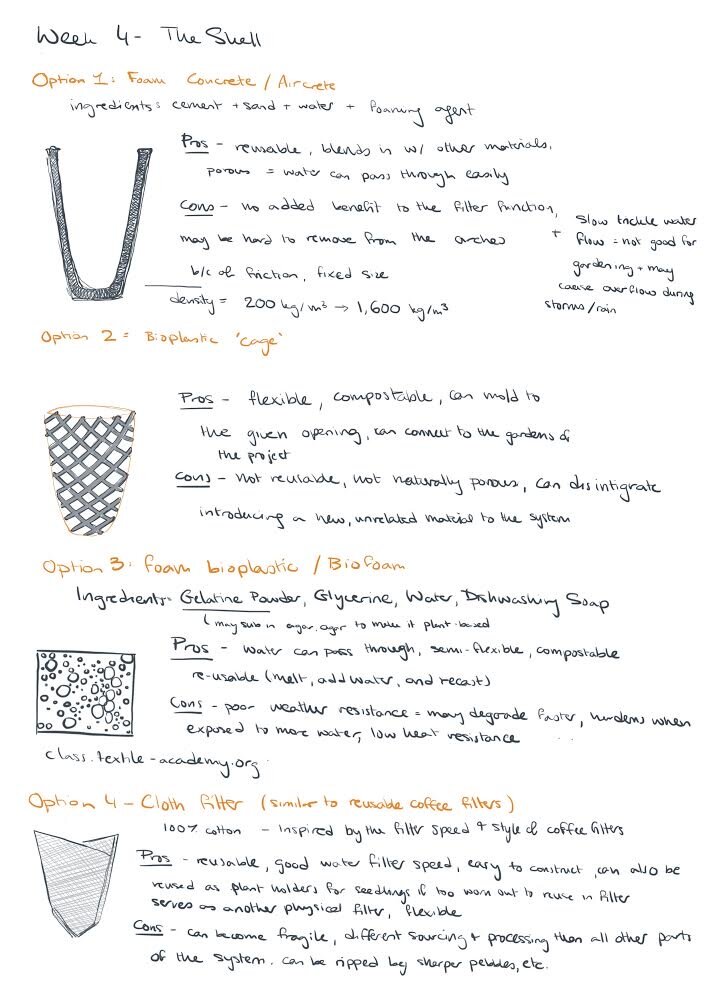 Week 4 - The Shell
Option 1: Foam Concrete / Aircrete
ingredients: cement + sand + water + foaming agent
Pros - reusable, blends in w/ other materials,
porous = water can pass through easily
Cons - no added benefit to the filter function,
may be hard to remove from the arches
b/c of friction, fixed size
+ Slow trickle water
flow = not good for
gardening + may
cause overflow during
storms/rain
density = 200 kg/m³ → 1,600 kg/m³
Option 2 = Bioplastic 'cage'
Pros - flexible, compostable, can mold to
the given opening, can connect to the gardens of
the project
Cons - not reusable, not naturally porous, can disintigrate
introducing a new, unrelated material to the system
Option 3: foam bioplastic / Biofoam
Ingredients: Gelatine Powder, Glycerine, Water, Dishwashing Soap
( may sub in agar.agar to make it plant-based
Pros - water can pass through, semi-flexible, compostable
re-usable (melt, add water, and recast)
Cons - poor weather resistance = may degrade faster, hardens when
exposed to more water, low heat resistance
class.textile-academy.org
Option 4 - Cloth filter (similar to reusable coffee filters)
100% cotton - Inspired by the filter speed + style of coffee filters
Pros - reusable, good water filter speed, easy to construct, can also be
reused as plant holders for seedlings if too worn out to reuse in filter
serves as another physical filter, flexible
Cons - can become fragile, different sourcing + processing than all other parts
of the system. can be ripped by sharper pebbles, etc.